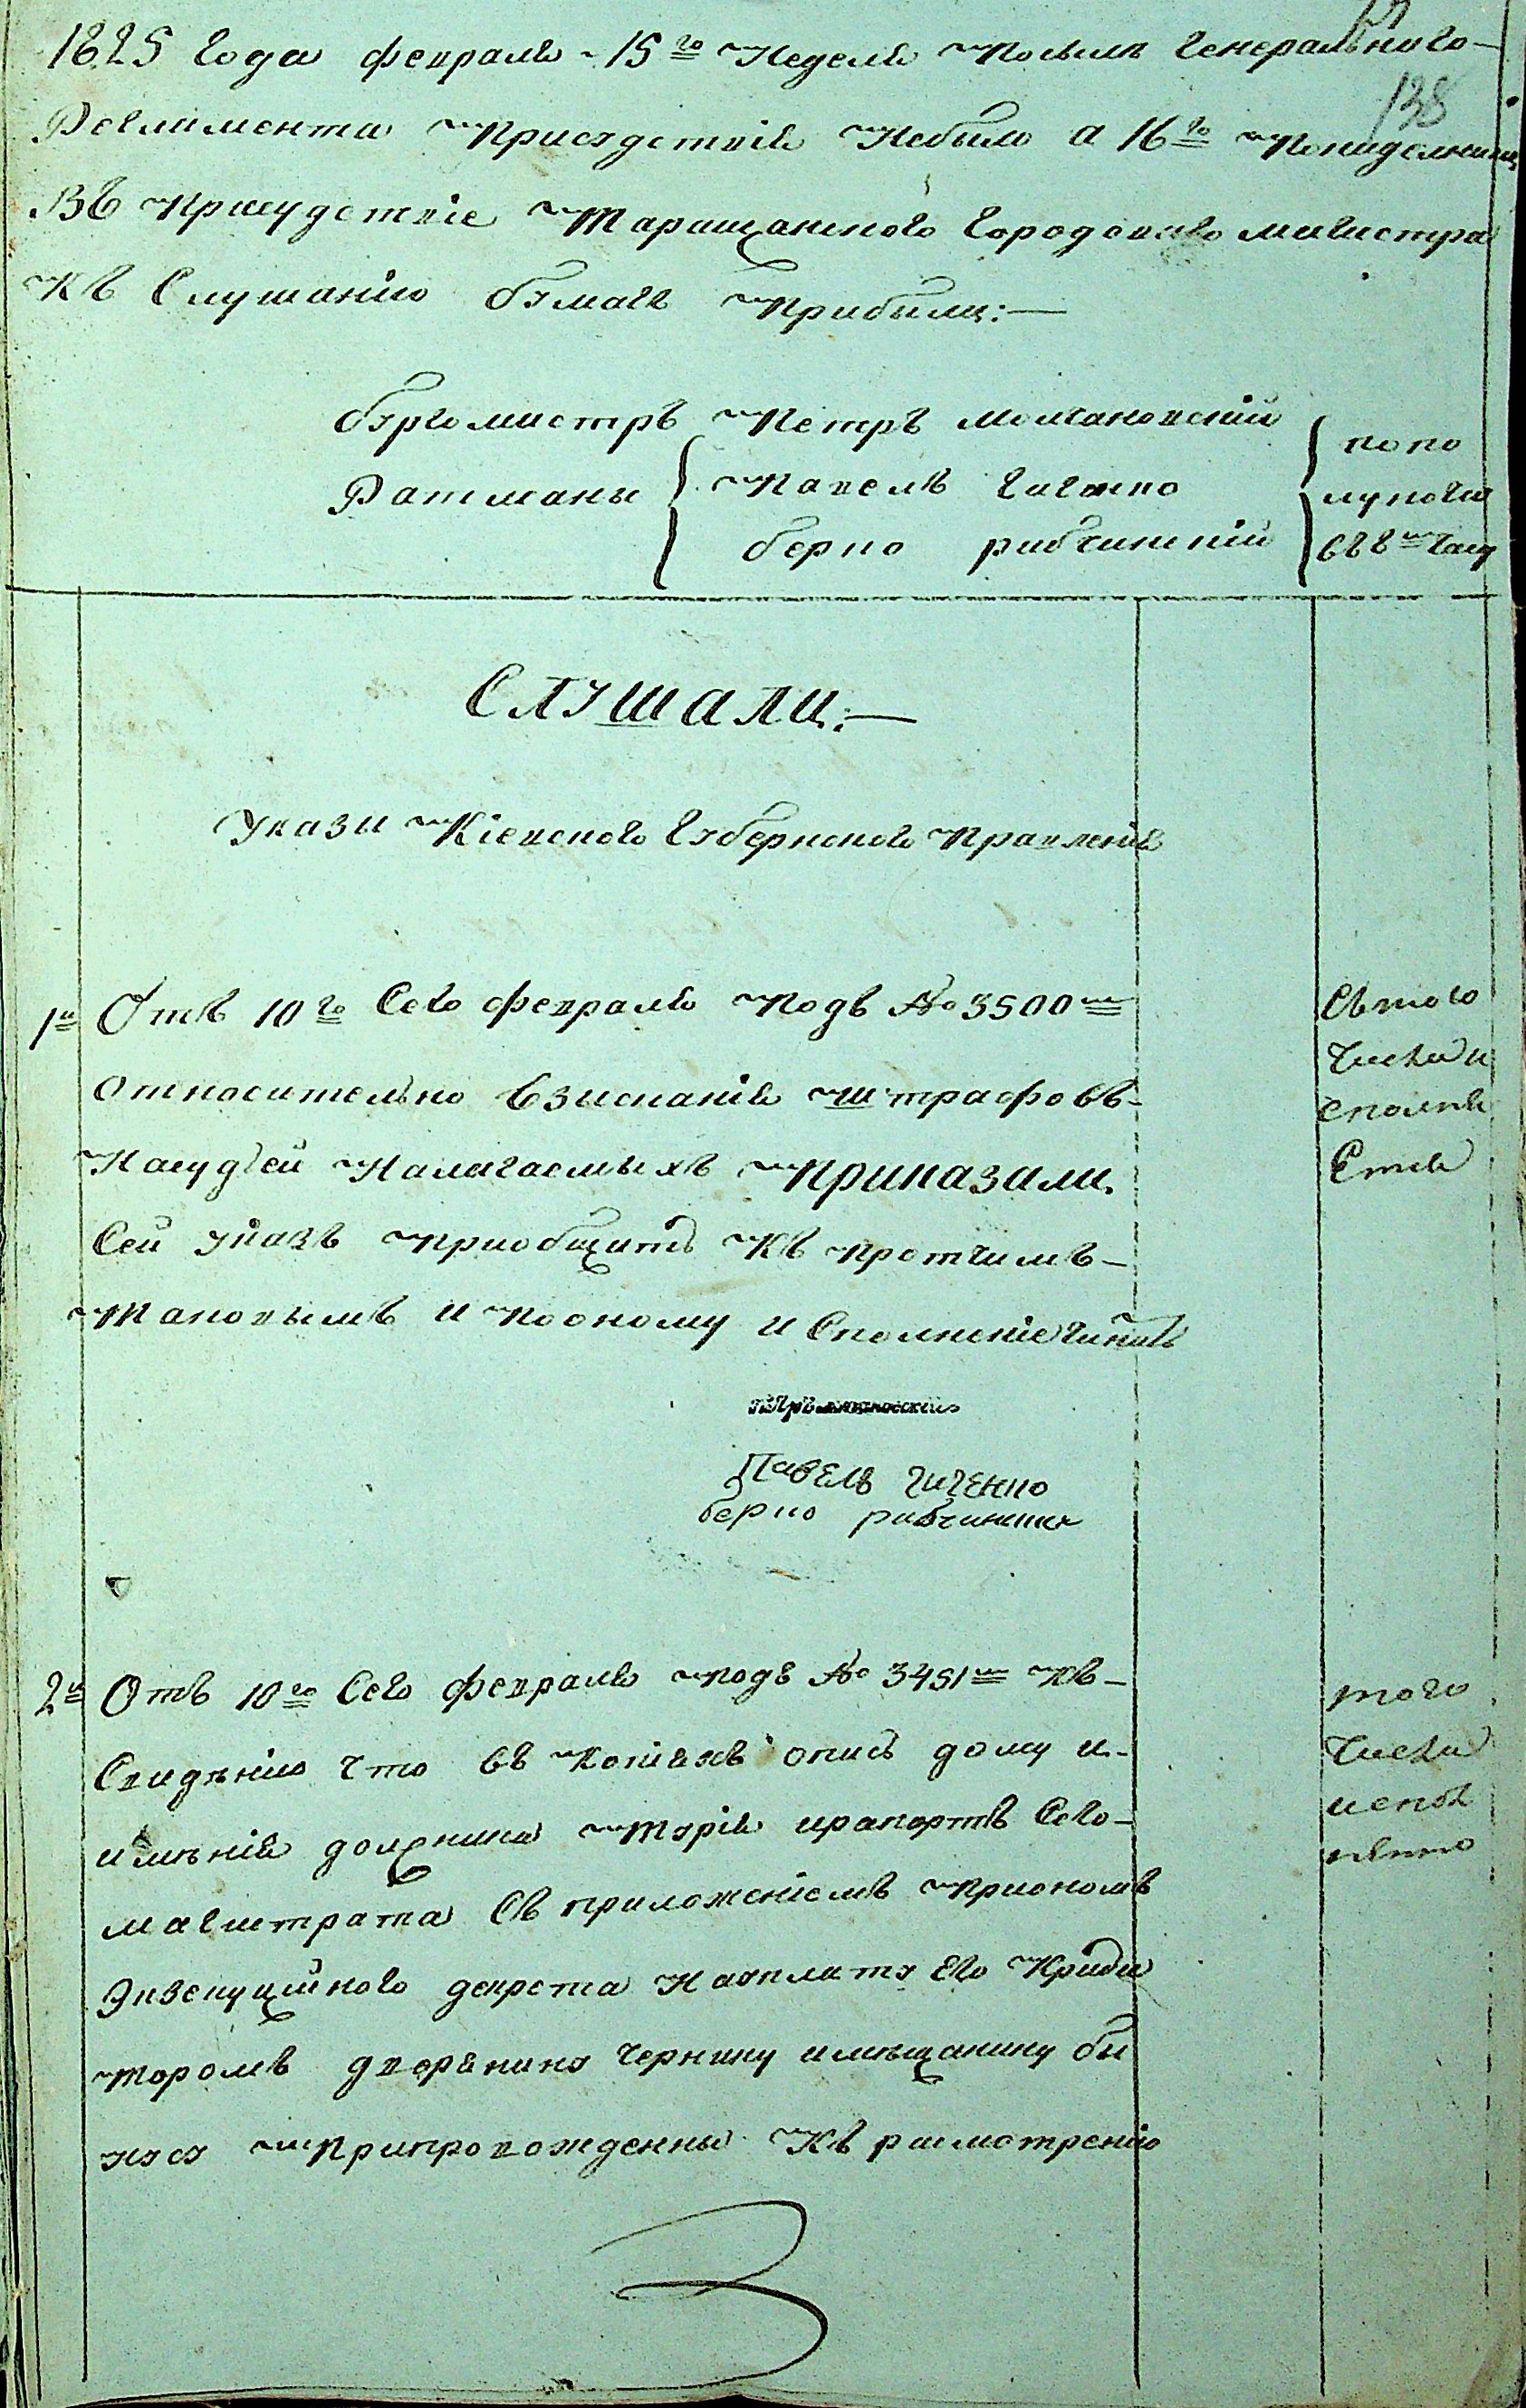 138
1825 года февраля 15го Неделя посылъ Генеральнаго
Регламента Присудствия Небыло а 16го Понидельник
Въ присудствіе Таращанского Городоваго магистра
Къ Слушанію бумагъ прибыли:—
бургомистръ Петръ молчановскій
Ратманы Павелъ Гиченко
берко рибчинскій
попо
луночи
въ 8м Часу
Слушали:—
Укази Кіевского Губернского Правленія
1й Отъ 10го Сего февраля подъ № 3500м
относительно взисканія штрафовъ
Насудьей Налагаемыхъ Приказали
Сей указъ приобщить Къ протчимъ
таковымъ и поономy и Сполненіе чинить
Сътого
Числа и
сполня
Ется
Павелъ гиченко
берко рибчински
2й Отъ 10го Сего февраля подъ № 3451м къ
Свидѣнію что въ Копіяхъ опись дому и
имѣнія должника Турія ирапортъ Сего
магистрата Съ приложеніемъ приономъ
Экзекуційного декрета Науплату Его Криди
торомъ дворянину Чернику имѣщанину бы
Препровожденны Къ расмотренію
того
Числа
испол
нѣнно